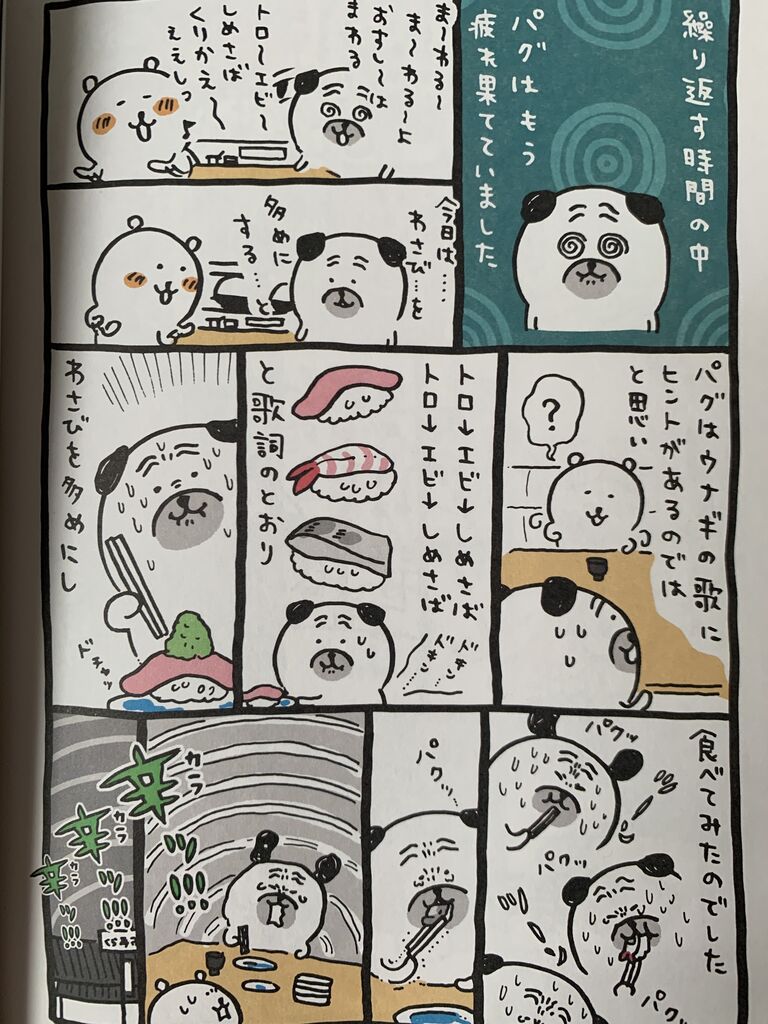 繰り返す時間の中
パグはもう
疲れ果てていました
ま〜わる〜
ま〜わる〜よ
おすし〜は
まわる
トロ〜エビ〜
しめさば
くりかえ〜
ええしっ♪
今日は……
わさび…を
多めに
する…と
パグはウナギの歌に
ヒントがあるのでは
と思い
?
トロ→エビ→しめさば
トロ→エビ→しめさば
と歌詞のとおり
ドキン
ドキン
わさびを多めにし
ドチャッ
食べてみたのでした
パクッ
パクッ
パクッ
パクッ
辛ッ!!!
カラ
辛ッ!!!
カラ
辛ッ!!!
カラ